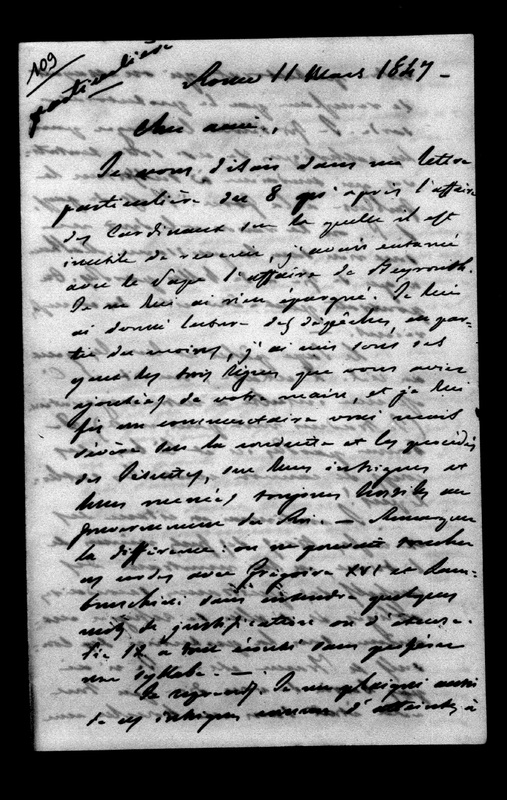 109
particulière
Rome 11 Mars 1847 -
Cher ami,
Je vous disais dans ma lettre
particulière du 8 qu'après l'affaire
des Cardinaux sur laquelle il est
inutile de revenir, j'avais entamé
avec le Pape l'affaire de Beyrouth.
Je ne lui ai rien épargné. Je lui
ai donné lecture des dépêches, en par-
tie du moins, j'ai mis sous ses
yeux les trois lignes que vous aviez
ajoutées de votre main, et je lui
fis un commentaire vrai mais
sévère sur la conduite et les procédés
des Jésuites, sur leurs intrigues et
leurs menées toujours hostiles au
Gouvernement du Roi. - Remarquez
la différence: on ne pouvait toucher
ces cordes avec Grégoire XVI et Lam-
bruschini sans entendre quelques
mots de justification ou d'excuse.
Pie IX a tout écouté sans proférer
une syllabe. -
Je repris. Je me plaignis aussi
de ces intrigues comme d'atteintes à